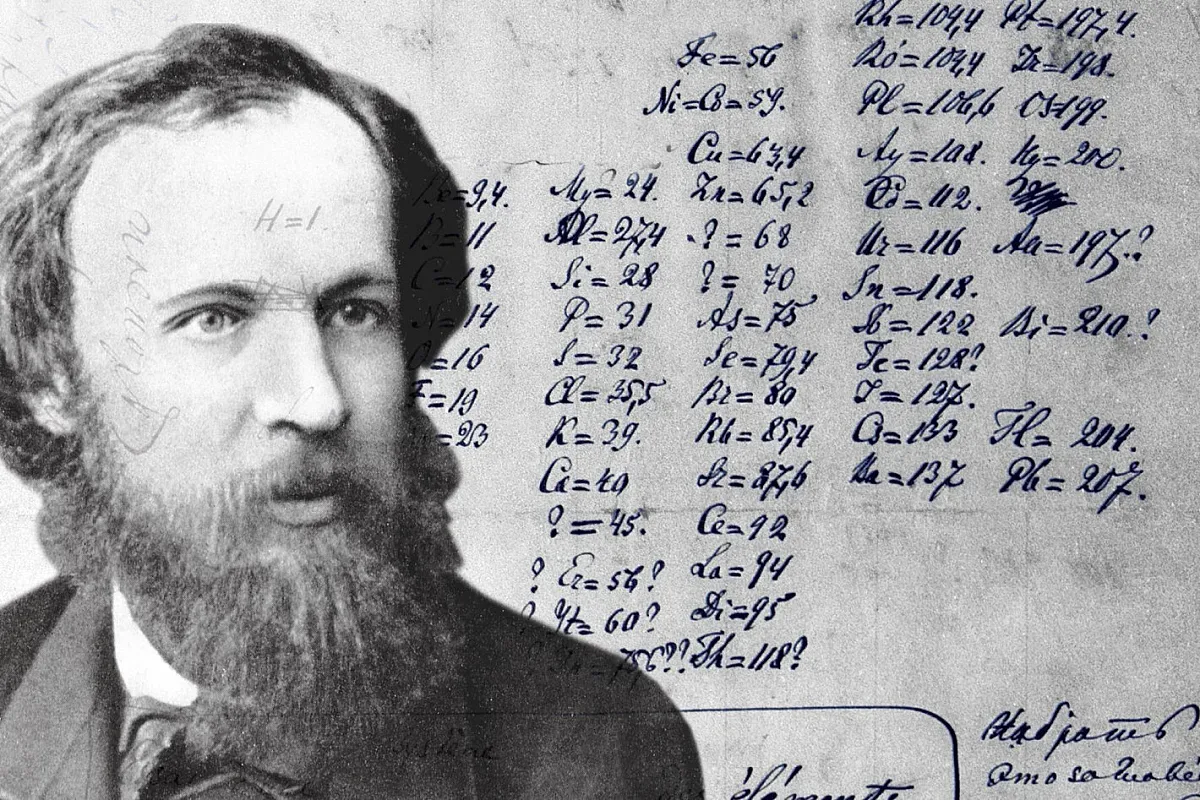 Rh=104,4 Pt=197,4.
Fe=56 Ro=104,4 Ir=198.
Ni=Co=59. Pl=106,6 Os=199.
Cu=63,4 Ag=108. Hg=200.
Be=9,4. Mg=24. Zn=65,2 Cd=112.
H=1 B=11 Al=27,4 ?=68 Ur=116 Au=197?
C=12 Si=28 ?=70 Sn=118.
N=14 P=31 As=75 Sb=122 Bi=210?
O=16 S=32 Se=79,4 Te=128?
F=19 Cl=35,5 Br=80 I=127.
=23 K=39. Rb=85,4 Cs=133 Tl=204.
Ca=40 Sr=87,6 Ba=137 Pb=207.
?=45. Ce=92
? Er=56? La=94
? Yt=60? Di=95
? In=75,6?? Th=118?
Набрать
éléments